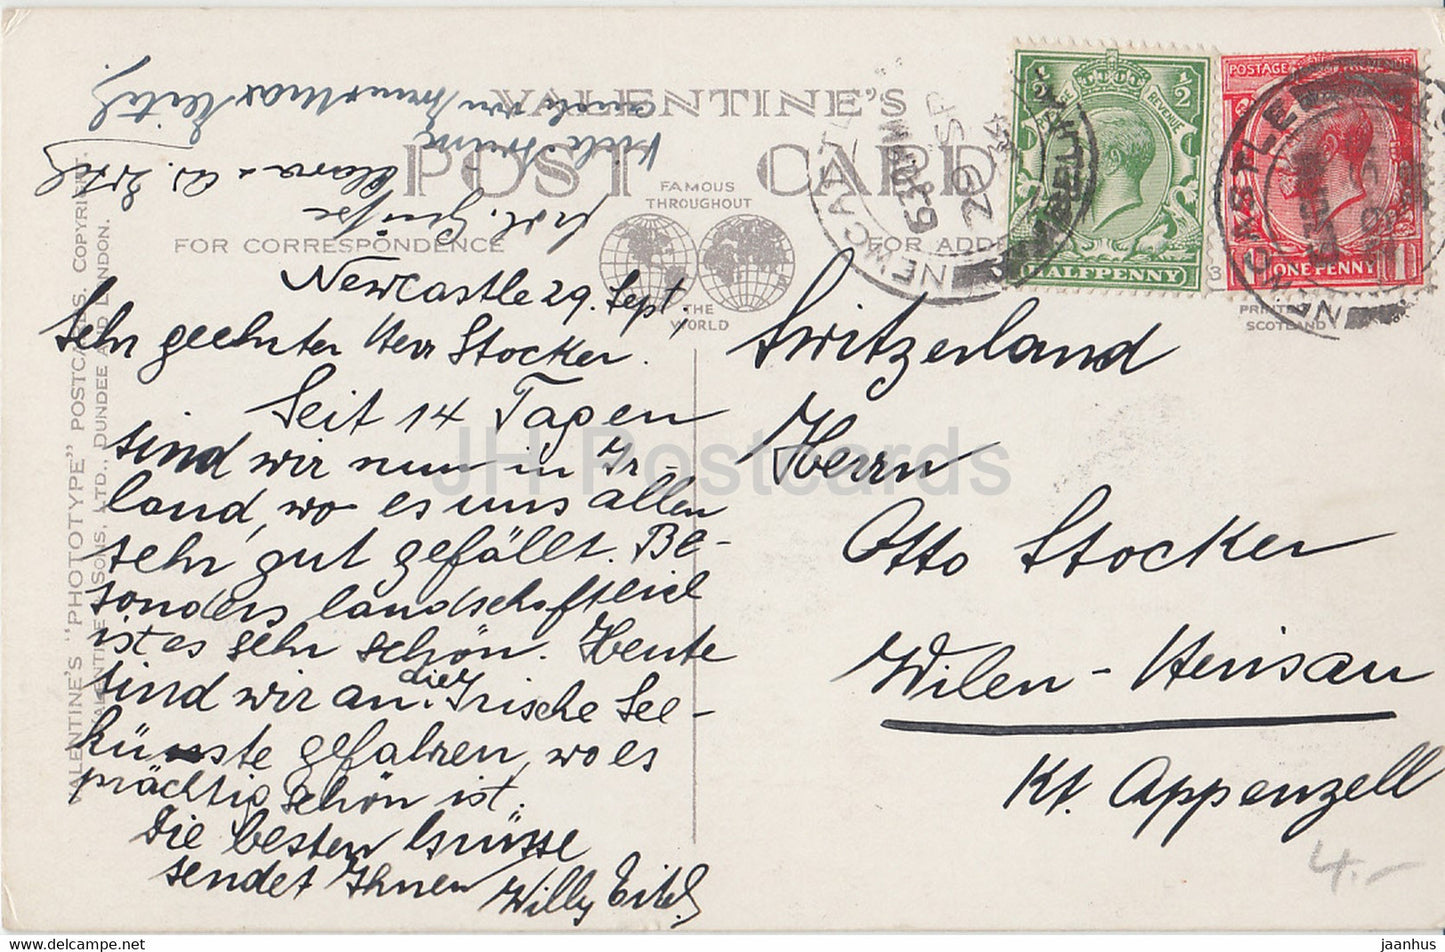 VALENTINE'S
POST CARD
FAMOUS
THROUGHOUT
THE
WORLD
FOR CORRESPONDENCE
FOR ADDRE
PRINTED
SCOTLAND
VALENTINE'S "PHOTOTYPE" POSTCARDS. COPYRIGHT.
VALENTINE & SONS, LTD., DUNDEE AND LONDON.
HALFPENNY
POSTAGE REVENUE
ONE PENNY
NEWCASTLE
6 30 PM
29 SP
34
NEWCASTLE
Newcastle 29. Sept.
Sehr geehrter Herr Stocker!
Seit 14 Tagen
sind wir nun in Ir-
land, wo es uns allen
sehr gut gefällt. Be-
sonders landschaftlich
ist es sehr schön. Heute
sind wir an die Irische See-
küste gefahren, wo es
prächtig schön ist.
Die besten Grüsse
sendet Ihnen Willy Eitel
Grüsse
Clara
Viele Grüsse
auch von Max Eitel.
Switzerland
Herrn
Otto Stocker
Wilen-Herisau
Kt. Appenzell
4.-
JH Postcards
www.delcampe.net
jaanhus